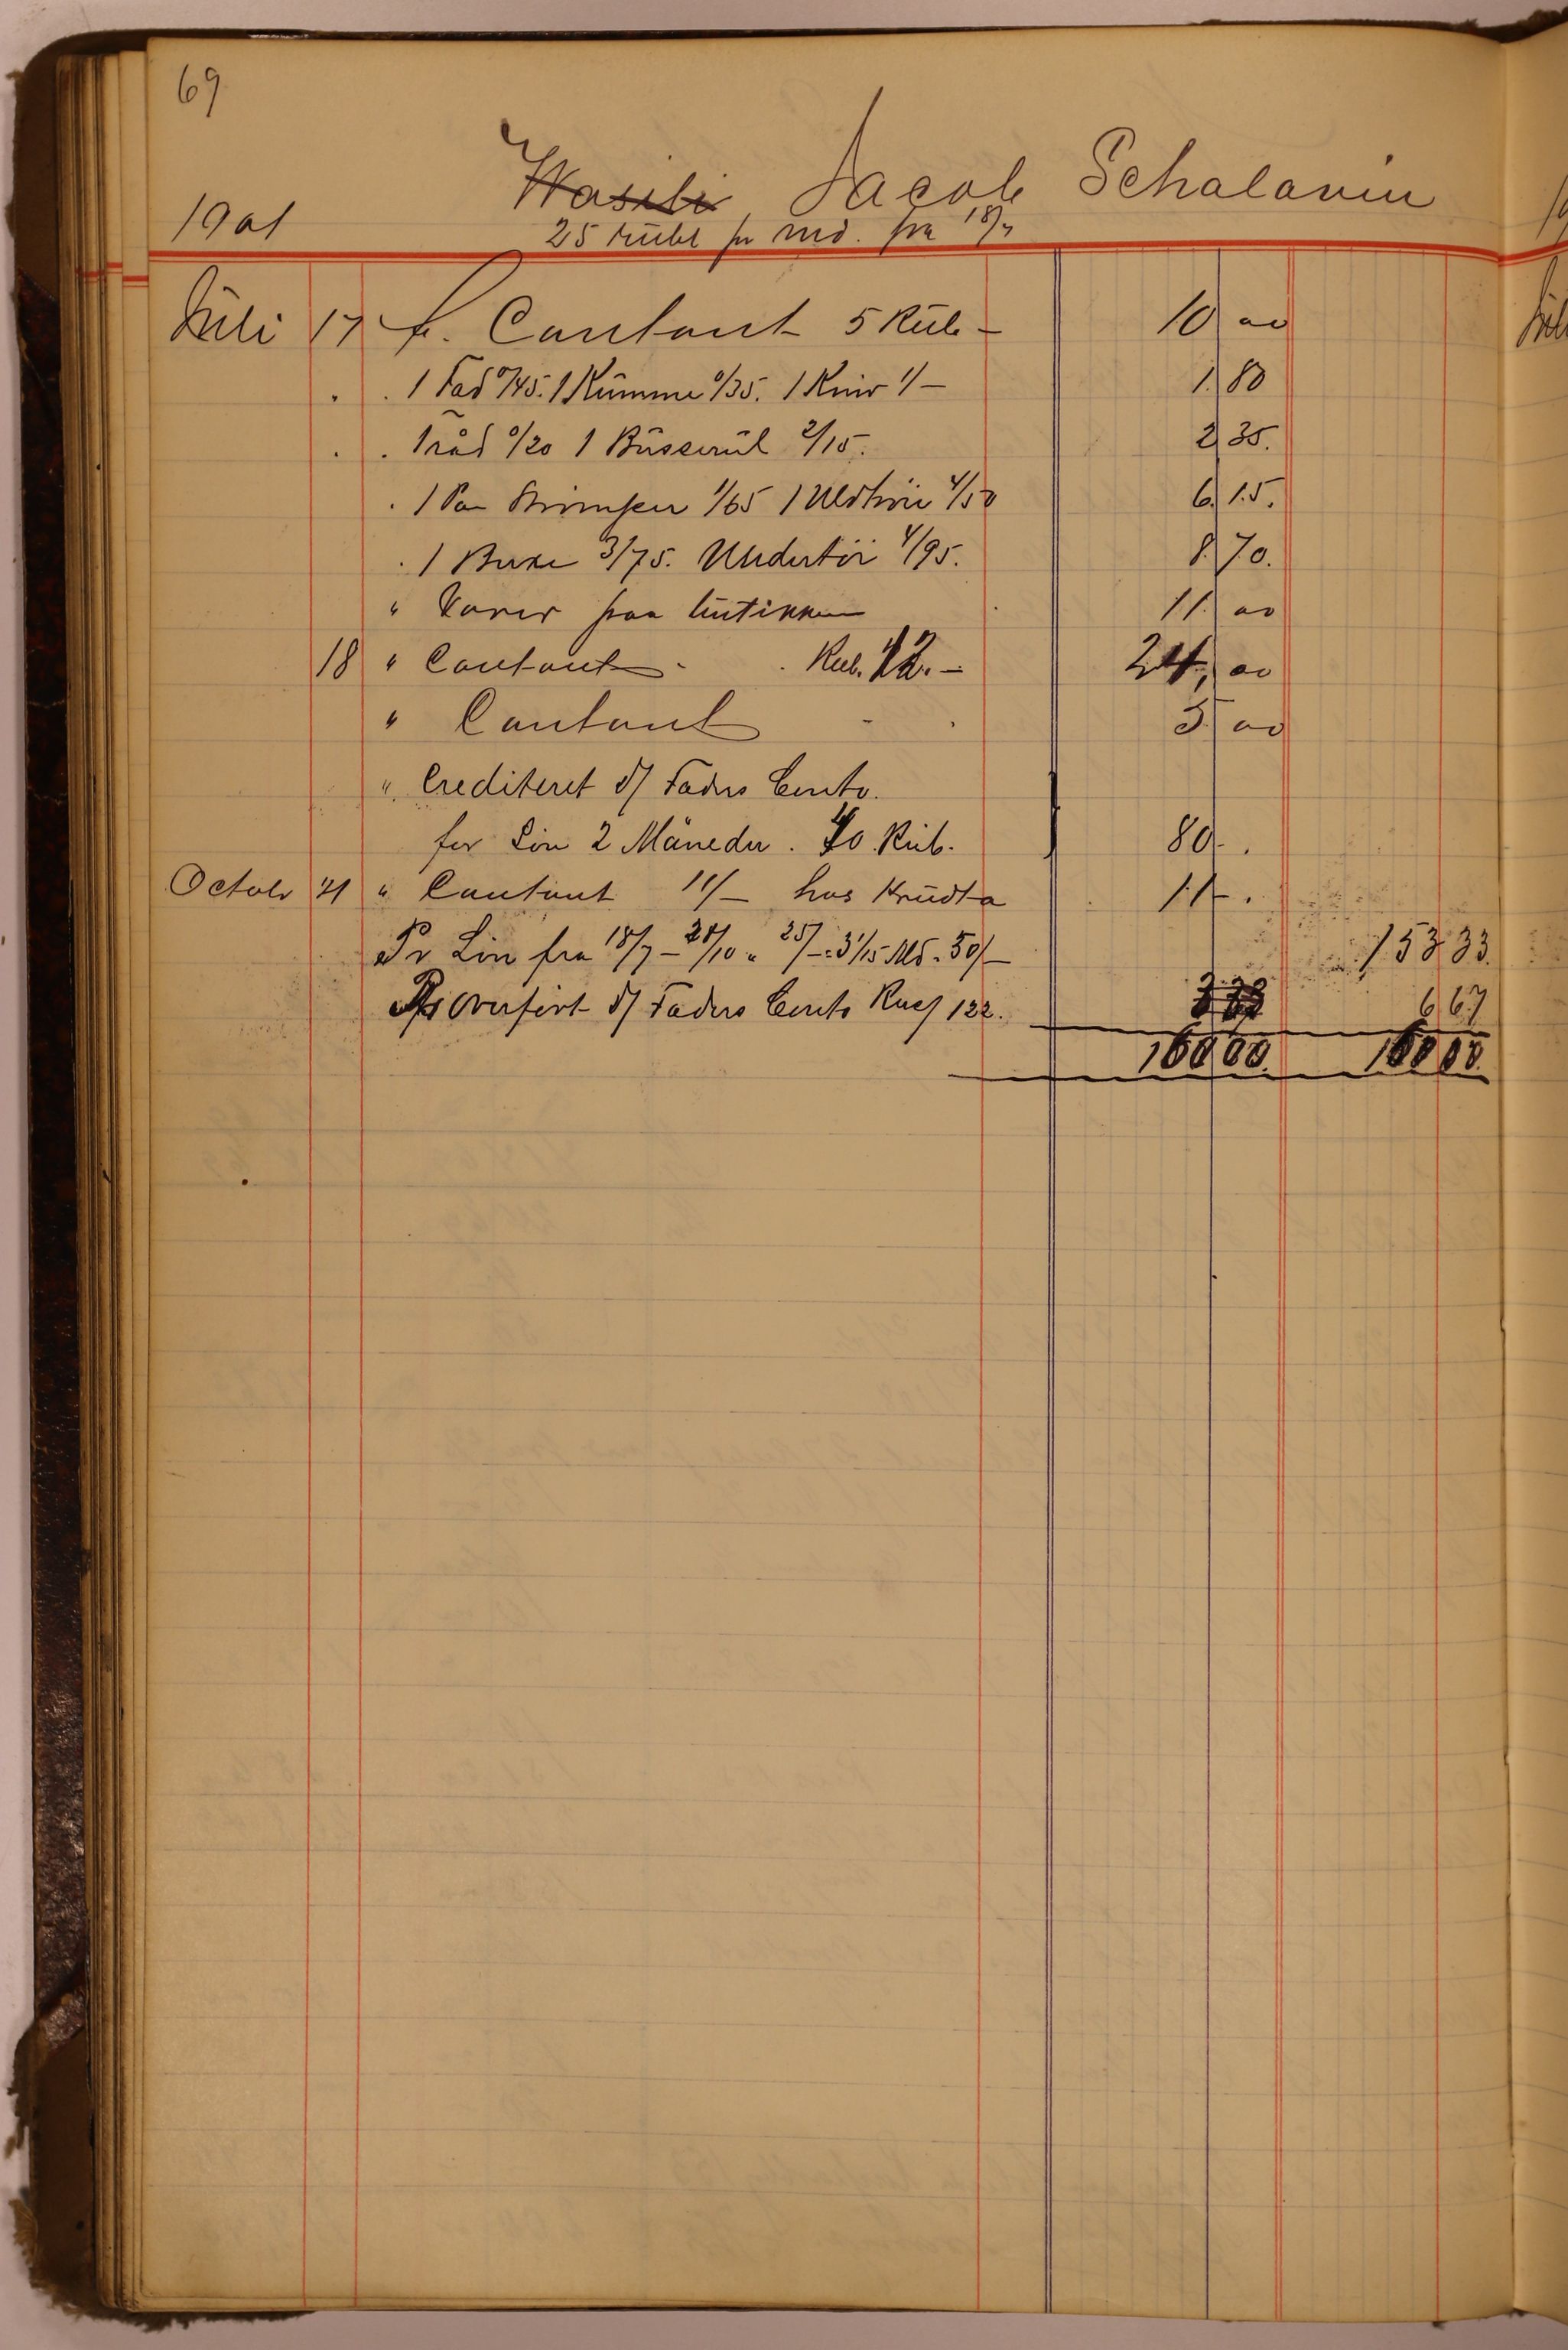 69
Wasili Jacob Schalavin
1901 25 rubl pr md. fra 18/7
Juli 17 Contant 5 Rub - 10 00
1 Fad 0/45. 1 Kumme 0/35. 1 Kniv 1/- 1.80
Tråd 0/20 1 Busserul 2/15. 2 35.
1 Par Strömper 1/65 1 Uldtröie 4/50 6.15.
1 Buxe 3/75. Undertöi 4/95. 8.70.
" Varer fra butikken 11. 00
18 " Contant Rub. 12.- 24, 00
" Contant 5 00
" Crediteret d/ Faders Conto.
for Lön 2 Måneder. 40. Rub. 80 - .
October 21 " Contant 11/- hos Krudta 11 - .
Pr Lön fra 18/7 - 20/10 " 25/- : 3 1/15 Md. 50/- 153 33.
Overfört d/ Faders Conto 122. 6 67
160 00. 160 00.